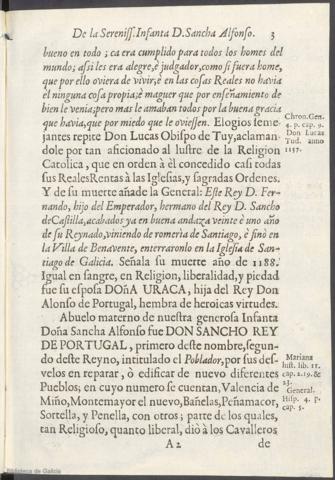 De la Sereniss. Infanta D. Sancha Alfonso. 3
bueno en todo ; ca era cumplido para todos los homes del
mundo; assi les era alegre, è judgador, como si fuera home,
que por ello oviera de vivir; è en las cosas Reales no havia
el ninguna cosa propia; è maguer que por enseñamiento de
bien le venia; pero mas le amaban todos por la buena gracia
que havia, que por miedo que le oviessen. Elogios seme-
jantes repite Don Lucas Obispo de Tuy, aclaman-
dole por tan aficionado al lustre de la Religion
Catolica , que en orden à èl concedido casi todas
sus Reales Rentas à las Iglesias, y sagradas Ordenes.
Y de su muerte añade la General: Este Rey D. Fer-
nando, hijo del Emperador, hermano del Rey D. Sancho
de Castilla, acabados ya en buena andaza veinte è uno año
de su Reynado, viniendo de romeria de Santiago, è finò en
la Villa de Benavente, enterraronlo en la Iglesia de San-
tiago de Galicia. Señala su muerte año de 1188.
Igual en sangre, en Religion, liberalidad, y piedad
fue su esposa DOñA URACA, hija del Rey Don
Alonso de Portugal, hembra de heroicas virtudes.
Abuelo materno de nuestra generosa Infanta
Doña Sancha Alfonso fue DON SANCHO REY
DE PORTUGAL, primero deste nombre, segun-
do deste Reyno, intitulado el Poblador, por sus des-
velos en reparar, ò edificar de nuevo diferentes
Pueblos; en cuyo numero se cuentan, Valencia de
Miño, Montemayor el nuevo, Bañelas, Peñamacor,
Sortella, y Penella, con otros ; parte de los quales,
tan Religioso, quanto liberal, diò à los Cavalleros
A 2 de
Chron. Gen.
4. p. cap. 9.
Don Lucas
Tud. anno
1157.
Mariana
hist. lib. 11.
cap. 2. 19. &
23.
General.
Hisp. 4. p.
cap. 5.
Biblioteca de Galicia